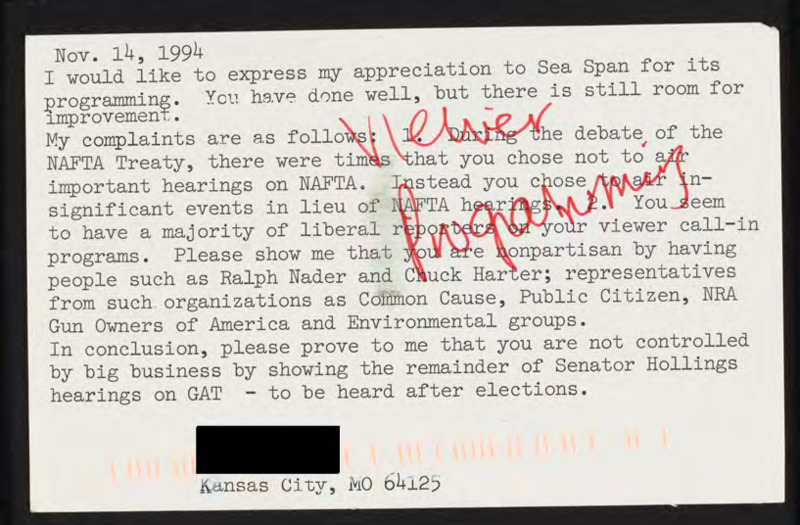 Nov. 14, 1994
I would like to express my appreciation to Sea Span for its
programming. You have done well, but there is still room for
improvement.
My complaints are as follows: 1. During the debate of the
NAFTA Treaty, there were times that you chose not to air
important hearings on NAFTA. Instead you chose to air in-
significant events in lieu of NAFTA hearings. 2. You seem
to have a majority of liberal reporters on your viewer call-in
programs. Please show me that you are nonpartisan by having
people such as Ralph Nader and Chuck Harter; representatives
from such organizations as Common Cause, Public Citizen, NRA
Gun Owners of America and Environmental groups.
In conclusion, please prove to me that you are not controlled
by big business by showing the remainder of Senator Hollings
hearings on GAT - to be heard after elections.
Kansas City, MO 64125
Viewer
Programming